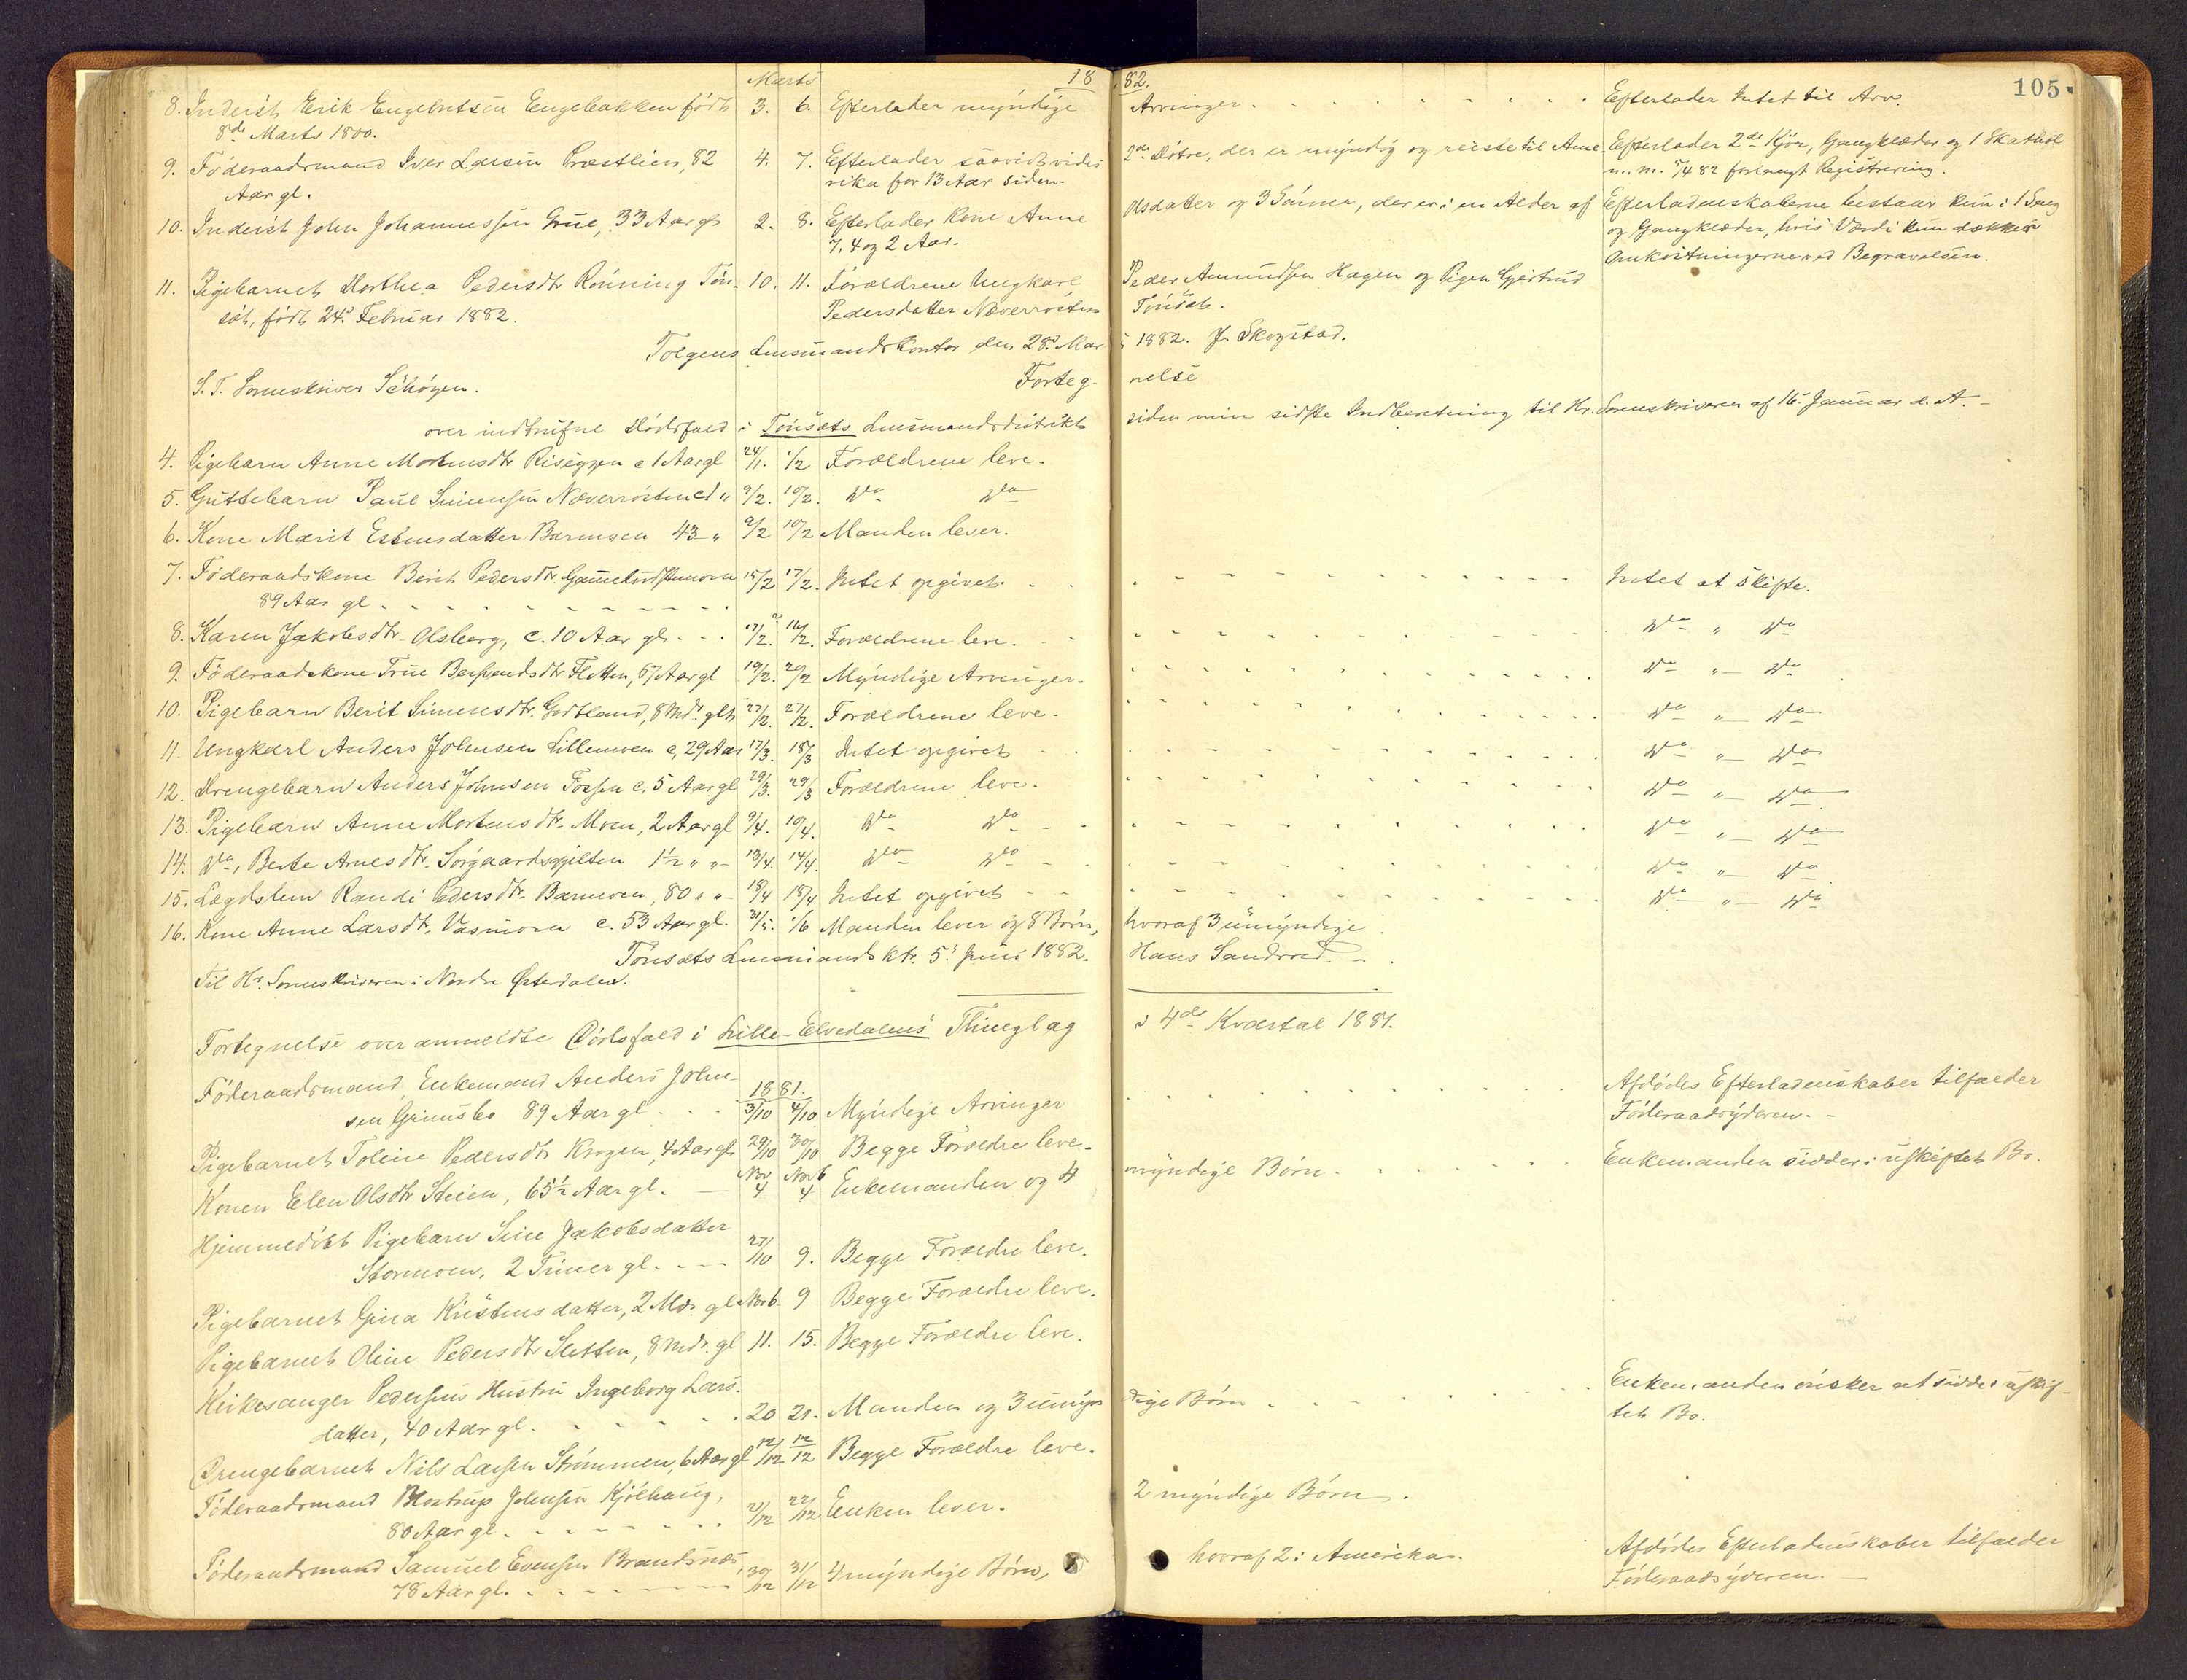 Marts 18 82. 105
8. Inderst Erik Engebretsen Engebakken født 3. 6. Efterlader myndige Arvinger. Efterlader Intet til Arv.
8de Marts 1800.
9. Føderaadsmand Iver Larsen Præstlien, 82 4. 7. Efterlader saavidt vides 2de Døtre, der er myndig og reiste til Ame- Efterlader 2de Kjør, Gangklæder og 1 Skathol
Aar gl. rika for 13 Aar siden. m. m. 5/4 82 forlangt Registrering.
10. Inderst John Johannessen Grue, 33 Aar gl 2. 8. Efterlader Kone Anne Olsdatter og 3 Sønner, der er i en Alder af Efterladenskaberne bestaar kun i 1 Seng
7, 4 og 2 Aar. og Gangklæder, hvis Værdi kun dækker
Omkostningerne ved Begravelsen.
11. Pigebarnet Dorthea Pedersdtr Rønning Tøn- 10. 11. Forældrene Ungkarl Peder Amundsen Hagen og Pigen Gjertrud
sæt, født 24de Februar 1882. Pedersdatter Næverrosten Tønsæt.
Tolgens Lensmandskontor den 28de Mar s 1882. J. Skogstad.
S. T. Sorenskriver Schøyen. Forteg- nelse
over indtrufne Dødsfald i Tønsæts Lensmandsdistrikt siden min sidste Indberetning til Hr. Sorenskriveren af 16. Januar d. A. -
4. Pigebarn Anne Mortensdtr Riseggen c 1 Aar gl 24/1. 1/2 Forældrene leve.
5. Guttebarn Paul Simensen Næverrosten c 1 " 9/2. 10/2. do do
6. Kone Marit Estensdatter Barmoen 43 " 9/2 10/2 Manden lever.
7. Føderaadskone Berit Pedersdtr. 15/2 17/2. Intet opgivet. Intet at skifte.
89 Aar gl
8. Karen Jakobsdtr Olsberg, c. 10 Aar gl. 17/2. 16/2. Forældrene leve. do " do
9. Føderaadskone True Bersvendsdtr Fletten, 67 Aar gl 19/2. 20/2 Myndige Arvinger. do " do
10. Pigebarn Berit Simensdtr. Godtland, 8 Mdr. glt 27/2. 27/2. Forældrene leve. do " do
11. Ungkarl Anders Johnsen Lillemoen c, 29 Aar 17/3. 18/3 Intet opgivet do " do
12. Drengebarn Anders Johnsen Fossen c, 5 Aar gl 29/3. 29/3 Forældrene leve. do " do
13. Pigebarn Anne Mortensdtr. Moen, 2 Aar gl 9/4. 10/4. do do do " do
14. do, Berte Arnesdtr. Sørgaardsgjelten 1½ " " 13/4. 14/4. do do do " do
15. Lægdslem Randi Pedersdtr. Barmoen, 80 " " 18/4 18/4 Intet opgivet do " do
16. Kone Anne Larsdtr. Vasmoen c. 53 Aar gl. 31/5. 1/6 Manden lever og 8 Børn, hvoraf 3 umyndige
Tønsæts Lensmandsktr. 5. Juni 1882. Hans Sandvoed.
Til Hr. Sorenskriveren i Nordre Østerdalen.
Fortegnelse over anmeldte Dødsfald i Lille-Elvedalens Thinglag i 4de Kvartal 1881.
Føderaadsmand, Enkemand Anders John- 1881. Afdødes Efterladenskaber tilfalder
sen Grimsbo 89 Aar gl. 3/10 4/10 Myndige Arvinger Føderaadsyderen. -
Pigebarnet Toline Pedersdtr Krogen, 4 Aar gl 29/10 30/10 Begge Forældre leve.
Konen Elen Olsdtr Steien, 65½ Aar gl. Nov 4 Novb 4 Enkemanden og 4 myndige Børn. Enkemanden sidder i uskiftet Bo.
Hjemmedøbt Pigebarn Sine Jakobsdatter
Stormoen, 2 Timer gl. 27/10 9. Begge Forældre leve.
Pigebarnet Gina Kristensdatter, 2 Mdr. gl. Nov 6 9 Begge Forældre leve.
Pigebarnet Oline Pedersdtr Sletten, 8 Mdr. gl 11. 15. Begge Forældre leve.
Kirkesanger Pedersens Hustru Ingeborg Lars- Enkemanden ønsker at sidde i uskif-
datter, 40 Aar gl. 20 21. Manden og 3 umyn dige Børn tet Bo.
Drengebarnet Nils Larsen Strømmen, 6 Aar gl 12/12 12/12 Begge Forældre leve.
Føderaadsmand Mostrup Johnsen Kjølhaug, 2 myndige Børn.
80 Aar gl. 21/12 22/12 Enken lever.
Føderaadsmand Samuel Evensen Brandsnæs, 30/12 31/12 4 myndige Børn, hvoraf 2 i Amerika. Afdødes Efterladenskaber tilfalder
78 Aar gl. Føderaadsyderen. -